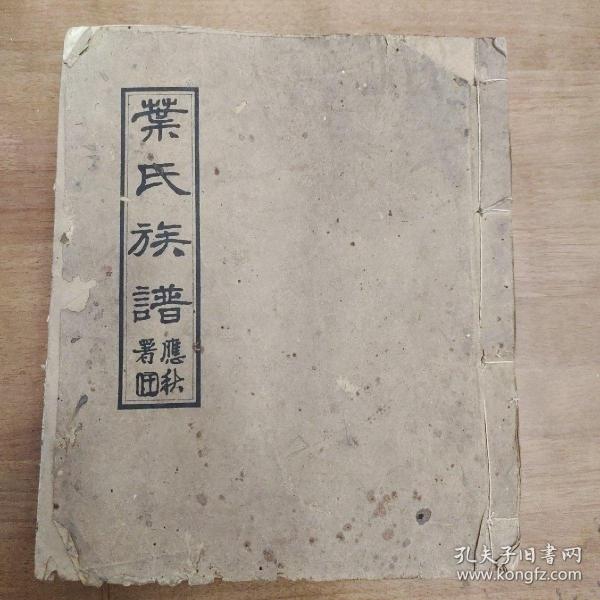 葉氏族譜
應秋
署
孔夫子旧書网
www.kongfz.com